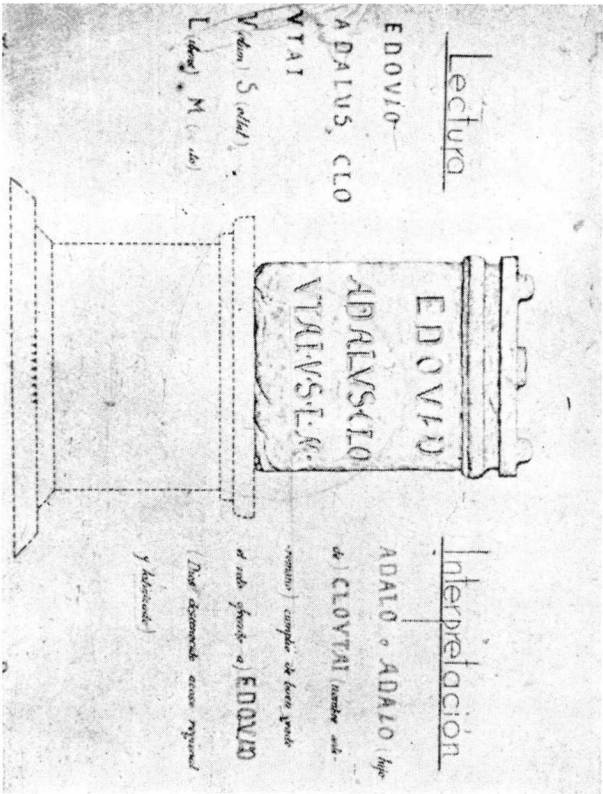 Lectura
EDOVIO
ADALUS, CLO
VTAI
V(otum) S(olvit),
L(ibens) M(erito)
EDOVIO
ADALVS·CLO
VTAI·V·S·L·M
Interpretación
ADALO o ADALO (hijo
de) CLOVTAI (nombre
romano) cumplió de buen grado
el voto ofrecido a) EDOVIO
(Dios desconocido acaso regional
y latinizado)